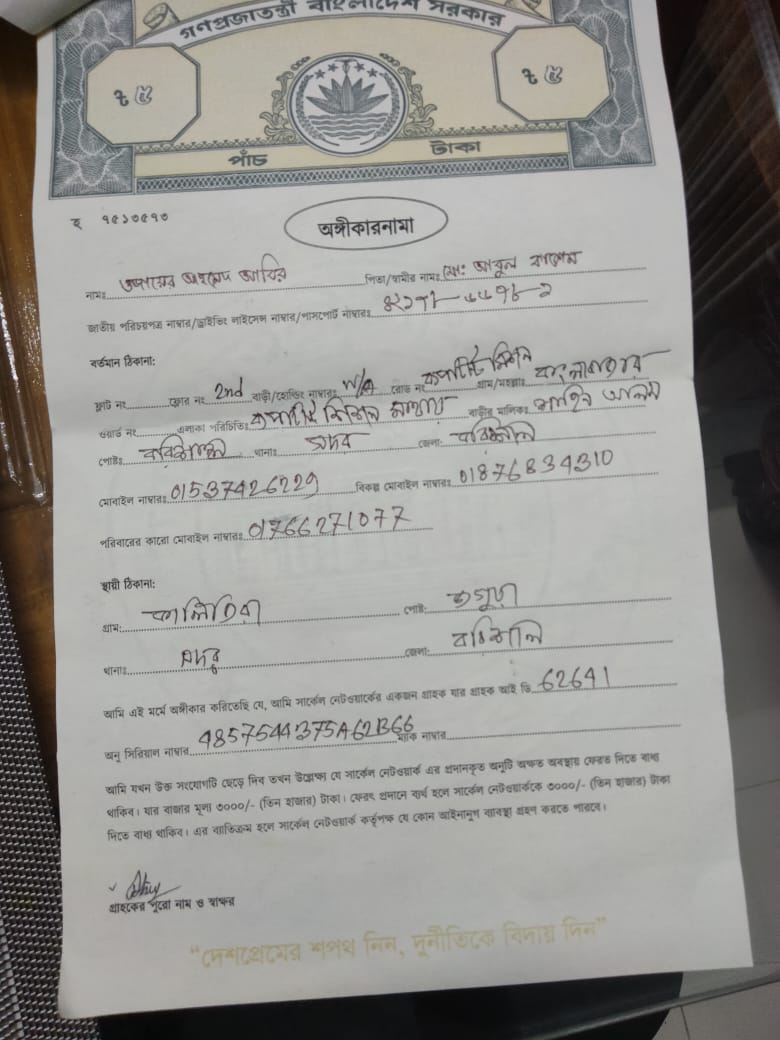 গণপ্রজাতন্ত্রী বাংলাদেশ সরকার
৳ ৫
৳ ৫
পাঁচ টাকা
হ ৭৫১৩৫৭৩
অঙ্গীকারনামা
নামঃ আহমেদ আবির পিতা/স্বামীর নামঃ মোঃ আবুল কাশেম
জাতীয় পরিচয়পত্র নাম্বার/ড্রাইভিং লাইসেন্স নাম্বার/পাসপোর্ট নাম্বারঃ
বর্তমান ঠিকানা:
ফ্লাট নং ফ্লোর নং 2nd বাড়ী/হোল্ডিং নাম্বারঃ N/A রোড নং গ্রাম/মহল্লাঃ বাংলাবাজার
ওয়ার্ড নং এলাকা পরিচিতিঃ মিশন বাড়ীর মালিকঃ আলম
পোষ্টঃ বরিশাল থানাঃ সদর জেলাঃ বরিশাল
মোবাইল নাম্বারঃ 01537426229 বিকল্প মোবাইল নাম্বারঃ 01876834310
পরিবারের কারো মোবাইল নাম্বারঃ 01766271077
স্থায়ী ঠিকানা:
গ্রাম: পোষ্ট:
থানাঃ সদর জেলা: বরিশাল
আমি এই মর্মে অঙ্গীকার করিতেছি যে, আমি সার্কেল নেটওয়ার্কের একজন গ্রাহক যার গ্রাহক আই ডি 62641
অনু সিরিয়াল নাম্বার 4857544375A62B66 ম্যাক নাম্বার
আমি যখন উক্ত সংযোগটি ছেড়ে দিব তখন উল্লেখ্য যে সার্কেল নেটওয়ার্ক এর প্রদানকৃত অনুটি অক্ষত অবস্থায় ফেরত দিতে বাধ্য
থাকিব। যার বাজার মূল্য ৩০০০/- (তিন হাজার) টাকা। ফেরৎ প্রদানে ব্যর্থ হলে সার্কেল নেটওয়ার্ককে ৩০০০/- (তিন হাজার) টাকা
দিতে বাধ্য থাকিব। এর ব্যতিক্রম হলে সার্কেল নেটওয়ার্ক কর্তৃপক্ষ যে কোন আইনানুগ ব্যবস্থা গ্রহণ করতে পারবে।
গ্রাহকের পুরো নাম ও স্বাক্ষর
“দেশপ্রেমের শপথ নিন, দুর্নীতিকে বিদায় দিন”